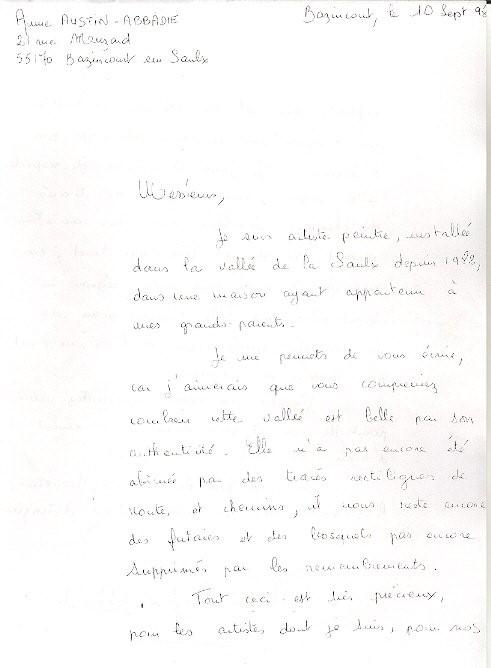 Anne AUSTIN-ABBADIE
21 rue Menzard
55170 Bazincourt sur Saulx
Bazincourt, le 10 Sept 98
Messieurs,
Je suis artiste peintre, installée
dans la vallée de la Saulx depuis 1982,
dans une maison ayant appartenu à
mes grands-parents.
Je me permets de vous écrire,
car j'aimerais que vous compreniez
combien cette vallée est belle par son
authenticité. Elle n'a pas encore été
abîmée par des tracés rectilignes de
route et chemins, il nous reste encore
des futaies et des bosquets pas encore
supprimés par les remembrements.
Tout ceci est très précieux,
pour les artistes dont je suis, pour nos